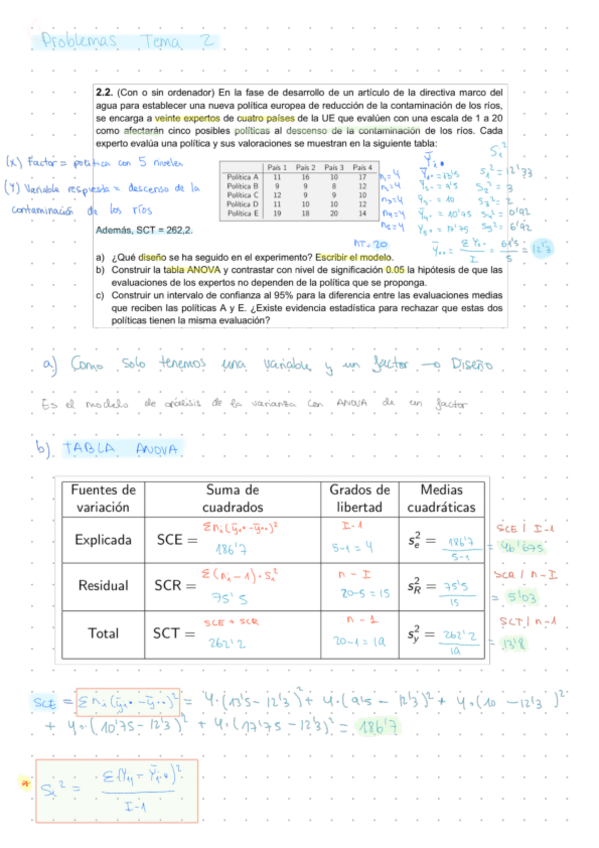 Problemas Tema 2
2.2. (Con o sin ordenador) En la fase de desarrollo de un artículo de la directiva marco del
agua para establecer una nueva política europea de reducción de la contaminación de los ríos,
se encarga a veinte expertos de cuatro países de la UE que evalúen con una escala de 1 a 20
como afectarán cinco posibles políticas al descenso de la contaminación de los ríos. Cada
experto evalúa una política y sus valoraciones se muestran en la siguiente tabla:
(X) Factor = política con 5 niveles
(Y) Variable respuesta = descenso de la
contaminación de los ríos
País 1 País 2 País 3 País 4
Política A 11 16 10 17 n₁=4
Política B 9 9 8 12 n₂=4
Política C 12 9 9 10 n₃=4
Política D 11 10 10 12 n₄=4
Política E 19 18 20 14 n₅=4
nT=20
Además, SCT = 262,2.
a) ¿Qué diseño se ha seguido en el experimento? Escribir el modelo.
b) Construir la tabla ANOVA y contrastar con nivel de significación 0.05 la hipótesis de que las
evaluaciones de los expertos no dependen de la política que se proponga.
c) Construir un intervalo de confianza al 95% para la diferencia entre las evaluaciones medias
que reciben las políticas A y E. ¿Existe evidencia estadística para rechazar que estas dos
políticas tienen la misma evaluación?
a) Como solo tenemos una variable y un factor → Diseño.
Es el modelo de análisis de la varianza con ANOVA de un factor
b) TABLA ANOVA
Fuentes de variación Suma de cuadrados Grados de libertad Medias cuadráticas
Explicada SCE = Σni(ȳi• - ȳ••)² 186'7 I-1 5-1=4 s²e = 186'7/5-1 = 46'675 SCE / I-1
Residual SCR = Σ(ni-1)·Si² 75'5 n-I 20-5=15 s²R = 75'5/15 = 5'03 SCR / n-I
Total SCT = SCE + SCR 262'2 n-1 20-1=19 s²y = 262'2/19 = 13'8 SCT / n-1
SCE = Σni(ȳi• - ȳ••)² = 4·(13'5-12'3)² + 4·(9'5-12'3)² + 4·(10-12'3)²
+ 4·(10'75-12'3)² + 4·(17'75-12'3)² = 186'7